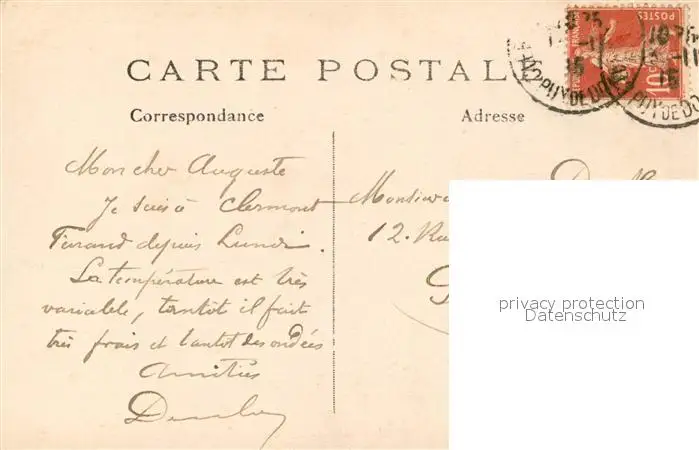 CARTE POSTALE
Correspondance
Adresse
POSTES
10
PUY DE DO
PUY DE DO
Mon cher Auguste
Je suis à Clermont
Ferand depuis Lundi.
La température est très
variable, tantôt il fait
très frais et tantôt des ondées
Amitiés
Monsieur
12. Ru
privacy protection
Datenschutz